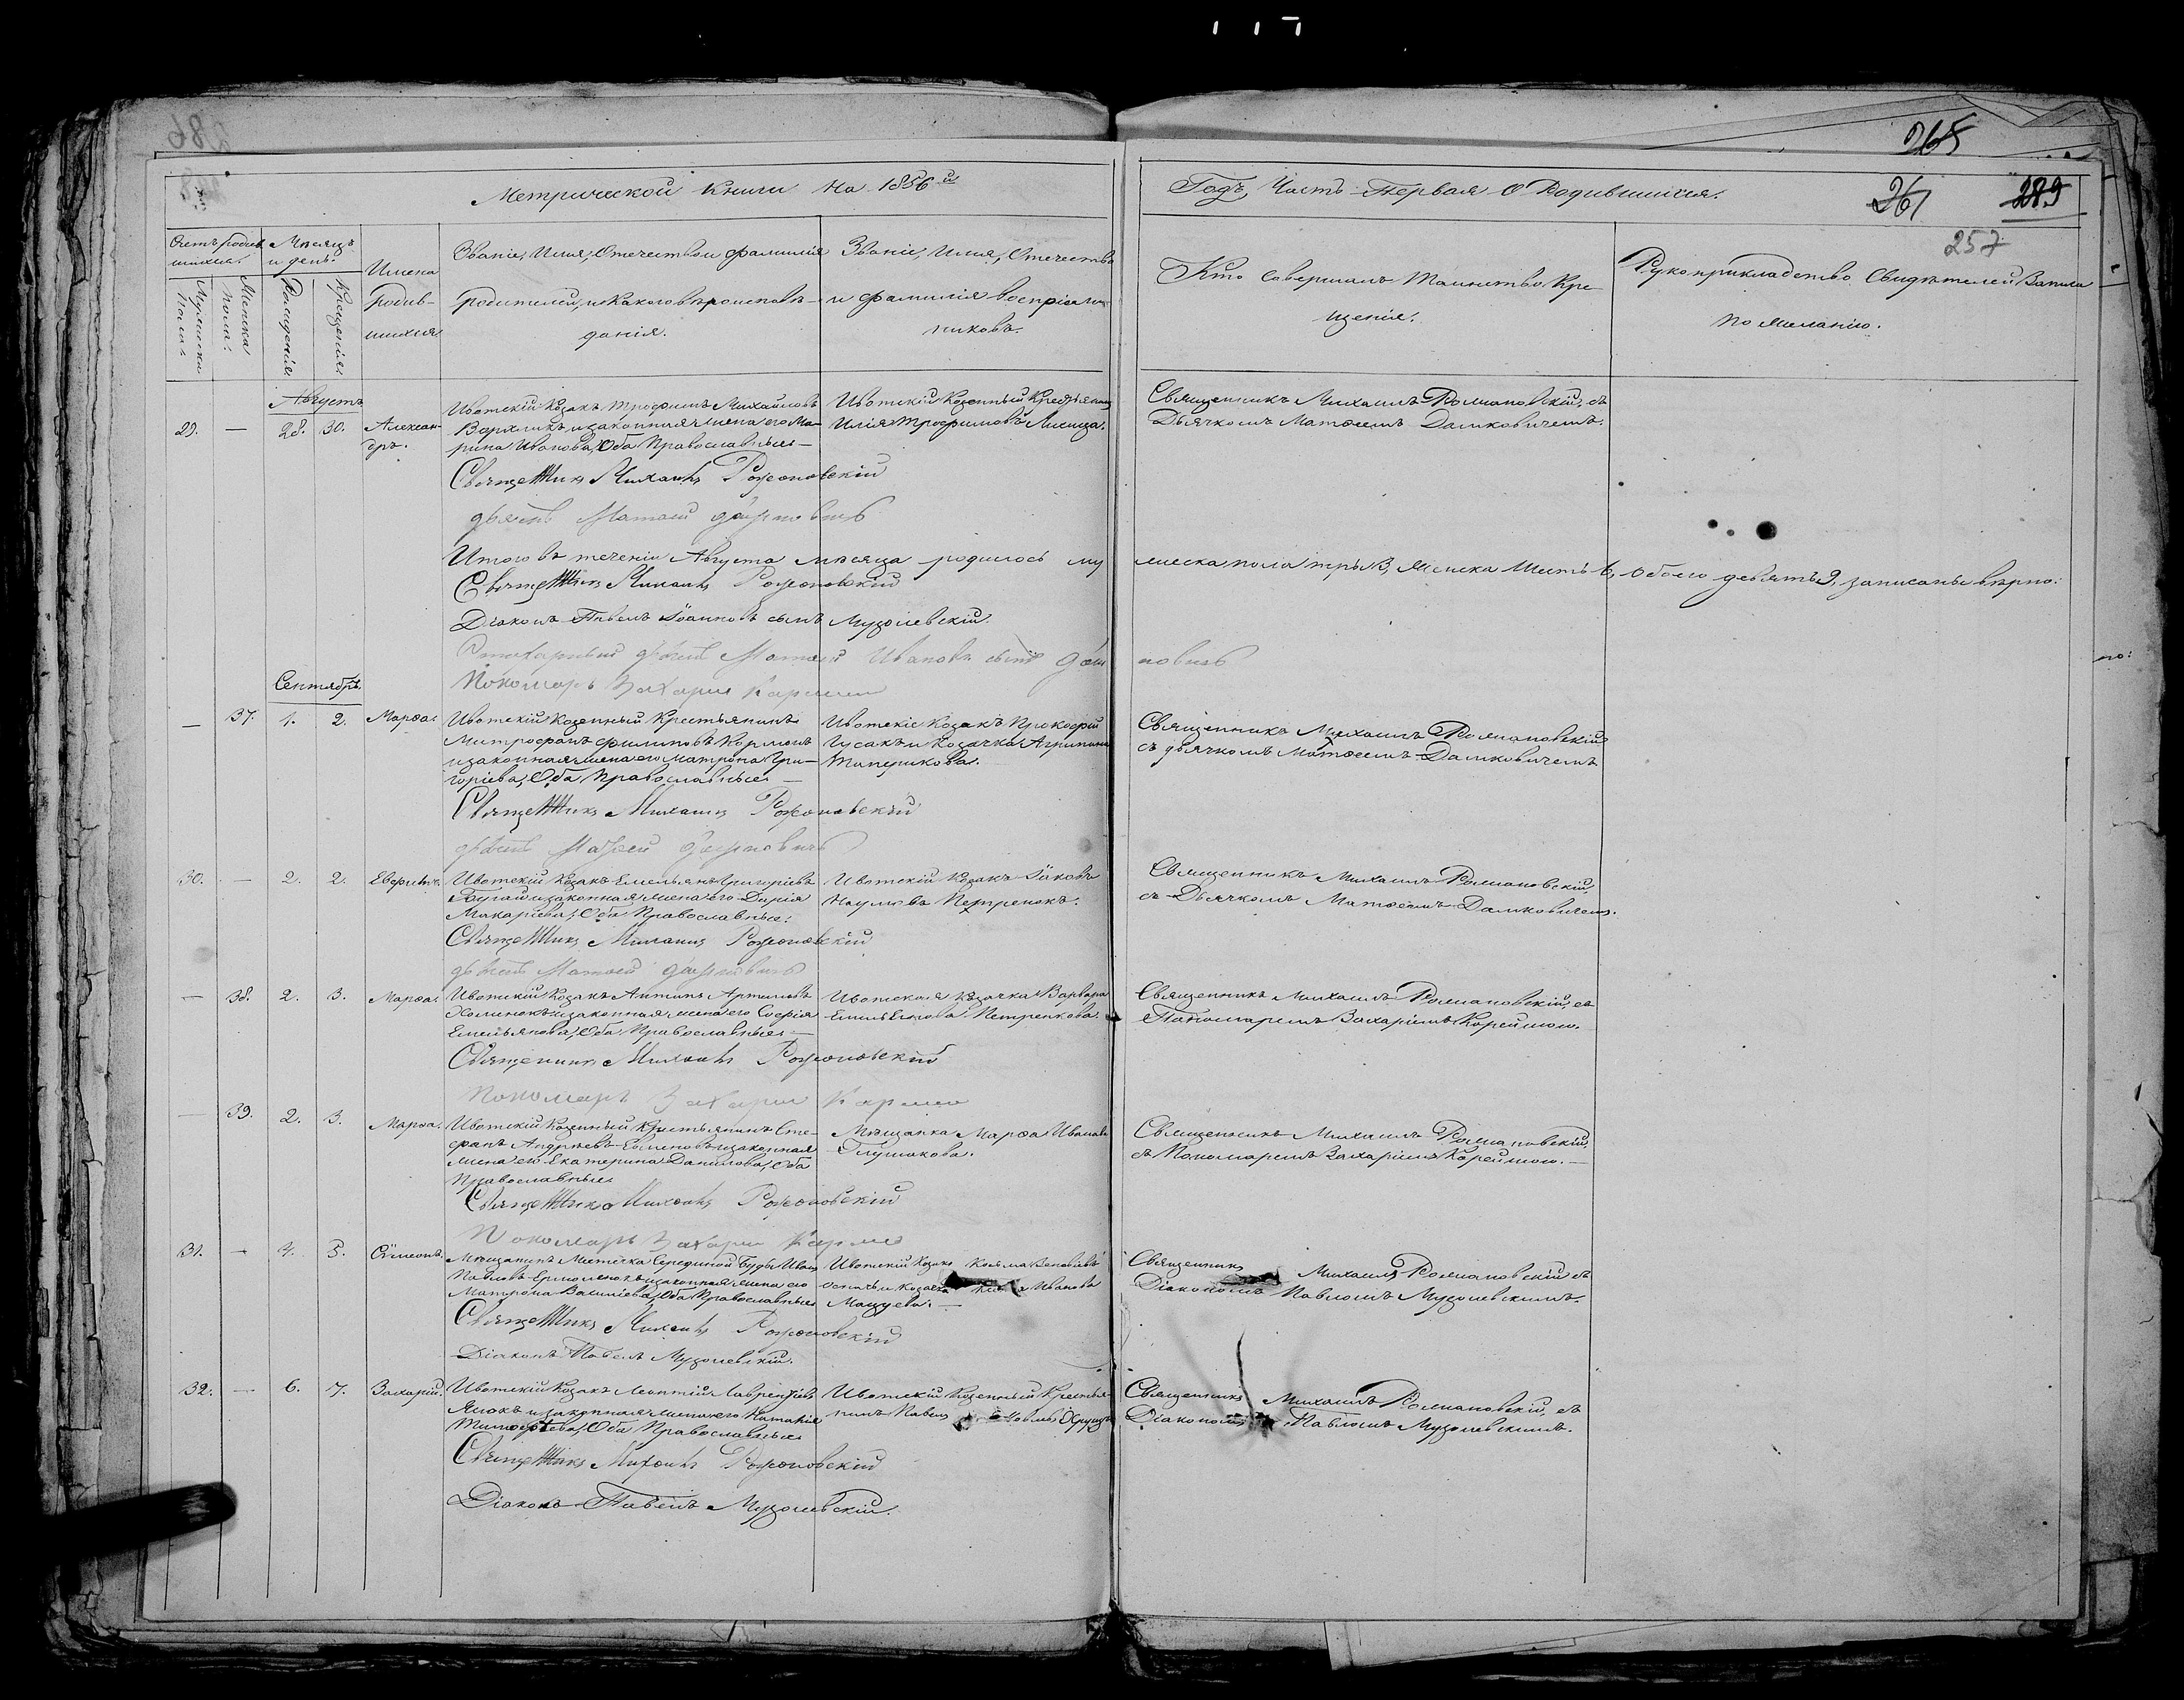 265
Метрической Книги на 1856й Годъ, Часть Первая О Родившихся.
261 289
257
Счетъ родившихся.
Мѣсяцъ и день.
Мужеска пола.
Женска пола.
Рожденія.
Крещенія.
Имена родившихся.
Званіе, Имя, Отечество и фамилія
родителей, и какого вѣроисповѣ-
данія.
Званіе, Имя, Отечество
и фамилія воспріем-
никовъ.
Кто совершалъ Таинство Кре-
щенія.
Рукоприкладство Свидѣтелей Записи
по желанію.
Августъ
29. — 28. 30. Александръ.
Ивотскій Козакъ Трофимъ Михайловъ
и законная жена его Ма-
рина Иванова, Оба Православные
Ивотскій Козенный Крестьянинъ
Илія Трофимовъ Лисица.
Священникъ Михаилъ Романовскій, съ
Дьячкомъ Матѳеемъ Дашковичемъ.
Священникъ Михаилъ Романовскій
дьячекъ Матѳей Дашковичъ
Итого въ теченіи Августа мѣсяца родилось мужеска пола три 3, Женска Шесть 6, Обоего девять 9, записаны вѣрно.
Священникъ Михаилъ Романовскій
Діаконъ Павелъ Іоанновъ сынъ Музолевскій.
Стихарный дьячекъ Матѳей Ивановъ сынъ Дашковичъ
Пономарь Захарія
Сентябрь
— 37. 1. 2. Марѳа.
Ивотскій Козенный Крестьянинъ
Митрофанъ Филиповъ
и законная жена его Матрона Гри-
горіева, Оба Православные —
Ивотскіе Козакъ Прокофій
Гусакъ и Козачка Агрипина
Типерикова.
Священникъ Михаилъ Романовскій
съ дьячкомъ Матѳеемъ Дашковичемъ
Священникъ Михаилъ Романовскій
дьячекъ Матѳей Дашковичъ
30. — 2. 2.
Ивотскій Козакъ Емельянъ Григоріевъ
и законная жена его Дарія
Макаріева, Оба Православные.
Ивотскій Козакъ Іаковъ
Наумовъ Петренокъ.
Священникъ Михаилъ Романовскій,
съ Дьячкомъ Матѳеемъ Дашковичемъ.
Священникъ Михаилъ Романовскій
дьячекъ Матѳей Дашковичъ
— 38. 2. 3. Марѳа.
Ивотскій Козакъ Антипъ Артемовъ
и законная жена его Софія
Емельянова, Оба Православные —
Ивотская Козачка Варвара
Емельянова Петренкова.
Священникъ Михаилъ Романовскій, съ
Пономаремъ Захаріемъ
Священникъ Михаилъ Романовскій
Пономарь Захарія
— 39. 2. 3. Марѳа.
Ивотскій Козенный Крестьянинъ Сте-
фанъ Андреевъ и законная
жена его Екатерина Данилова, Оба
Православные
Мѣщанка Марѳа Иванова
Глушакова.
Священникъ Михаилъ Романовскій,
съ Пономаремъ Захаріемъ
Священникъ Михаилъ Романовскій
Пономарь Захарія
31. — 4. 5. Сѵмеонъ.
Мѣщанинъ Мѣстечка Середина Буда Иванъ
Павловъ Ермоленокъ и законная жена его
Матрона Василіева, Оба Православные
Ивотскій Козакъ Козма
и Козачка Иванова
Мацуева. —
Священникъ Михаилъ Романовскій съ
Діакономъ Павломъ Музолевскимъ.
Священникъ Михаилъ Романовскій
Діаконъ Павелъ Музолевскій.
32. — 6. 7. Захарій.
Ивотскій Козакъ Леонтій Лаврентіевъ
и законная жена его Наталія
Тимофѣева, Оба Православные
Ивотскій Козенный Крестья-
нинъ Павелъ
Священникъ Михаилъ Романовскій, съ
Діакономъ Павломъ Музолевскимъ.
Священникъ Михаилъ Романовскій
Діаконъ Павелъ Музолевскій.